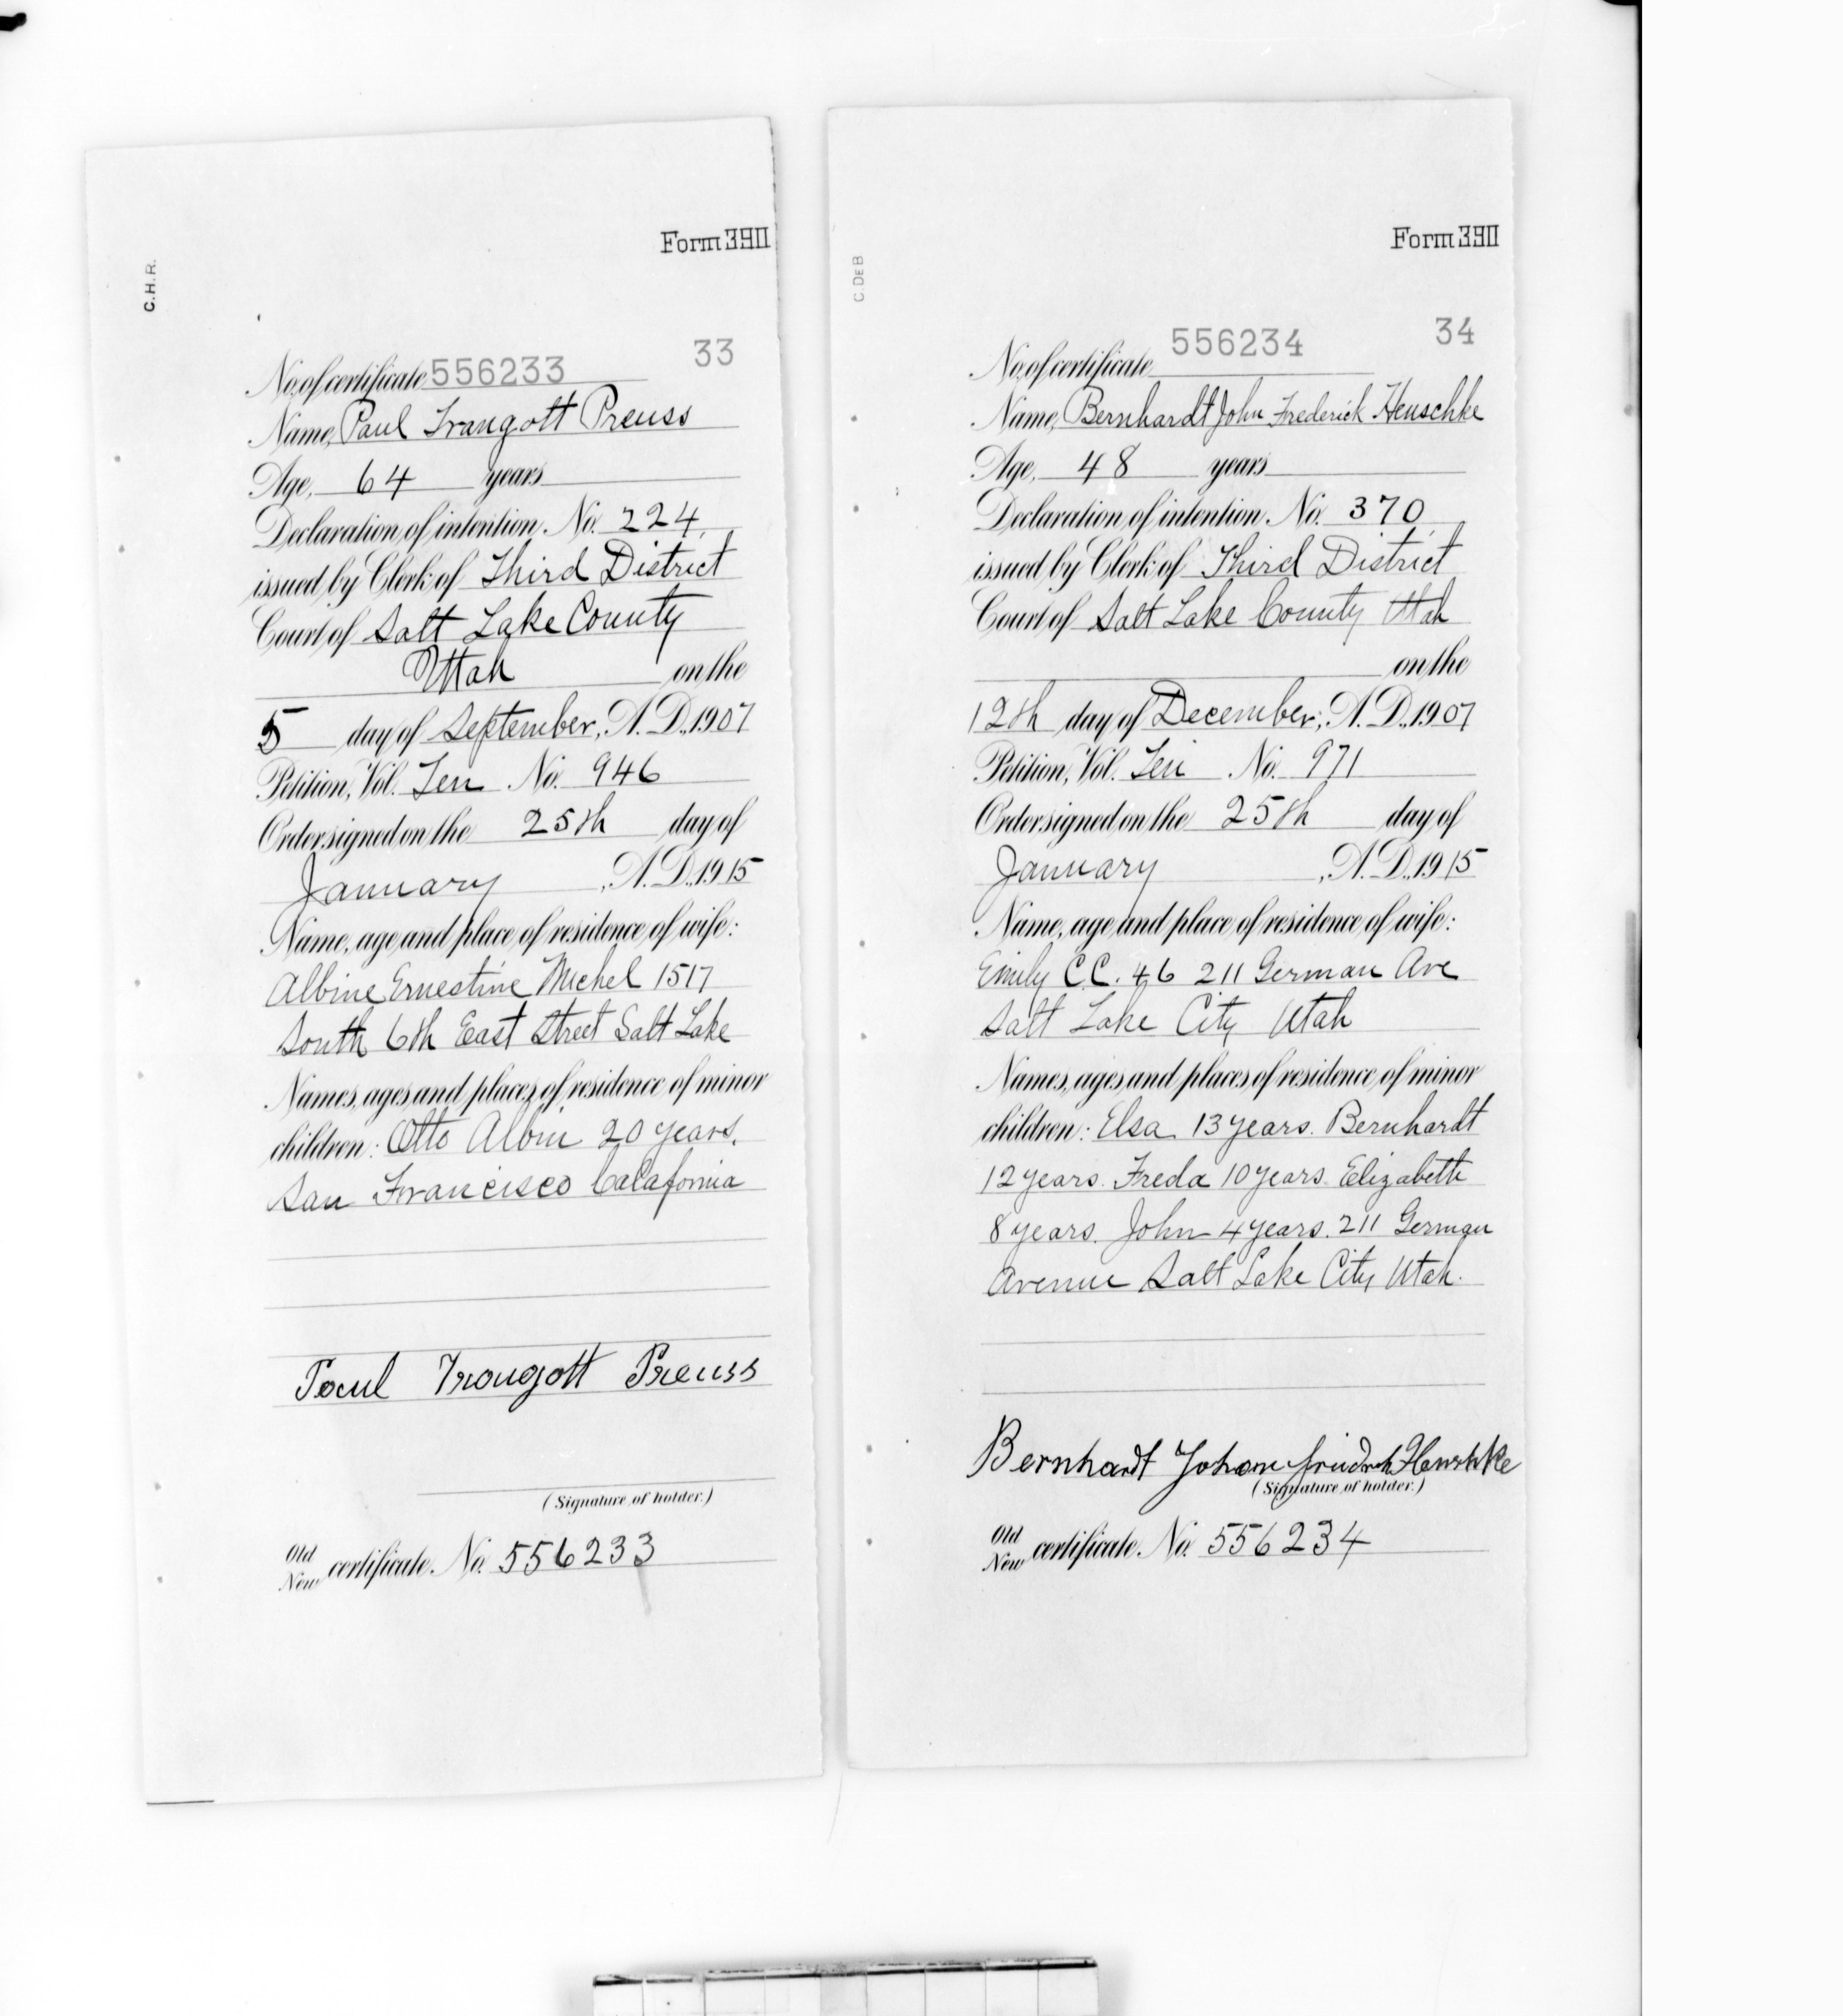 Form 390
C.H.R.
33
No. of certificate 556233
Name, Paul Traugott Preuss
Age, 64 years
Declaration of intention, No. 224,
issued by Clerk of Third District
Court of Salt Lake County
Utah on the
5 day of September, A.D., 1907
Petition, Vol. Ten No. 946
Order signed on the 25th day of
January, A.D., 1915
Name, age and place of residence of wife:
Albine Ernestine Michel 1517
South 6th East Street Salt Lake
Names, ages and places of residence of minor
children: Otto Albin 20 years.
San Francisco Calafornia
Paul Traugott Preuss
(Signature of holder.)
Old
New certificate. No. 556233
Form 390
C. DE B
34
No. of certificate 556234
Name, Bernhardt John Frederick Henschke
Age, 48 years
Declaration of intention No. 370,
issued by Clerk of Third District
Court of Salt Lake County Utah
on the
12th day of December, A.D., 1907
Petition, Vol. Ten No. 971
Order signed on the 25th day of
January, A.D., 1915
Name, age and place of residence of wife:
Emily C.C. 46 211 German Ave
Salt Lake City Utah
Names, ages and places of residence of minor
children: Elsa 13 years. Bernhardt
12 years. Freda 10 years. Elizabeth
8 years. John 4 years. 211 German
Avenue Salt Lake City Utah.
Bernhardt Johann Friedrich Henschke
(Signature of holder.)
Old
New certificate. No. 556234